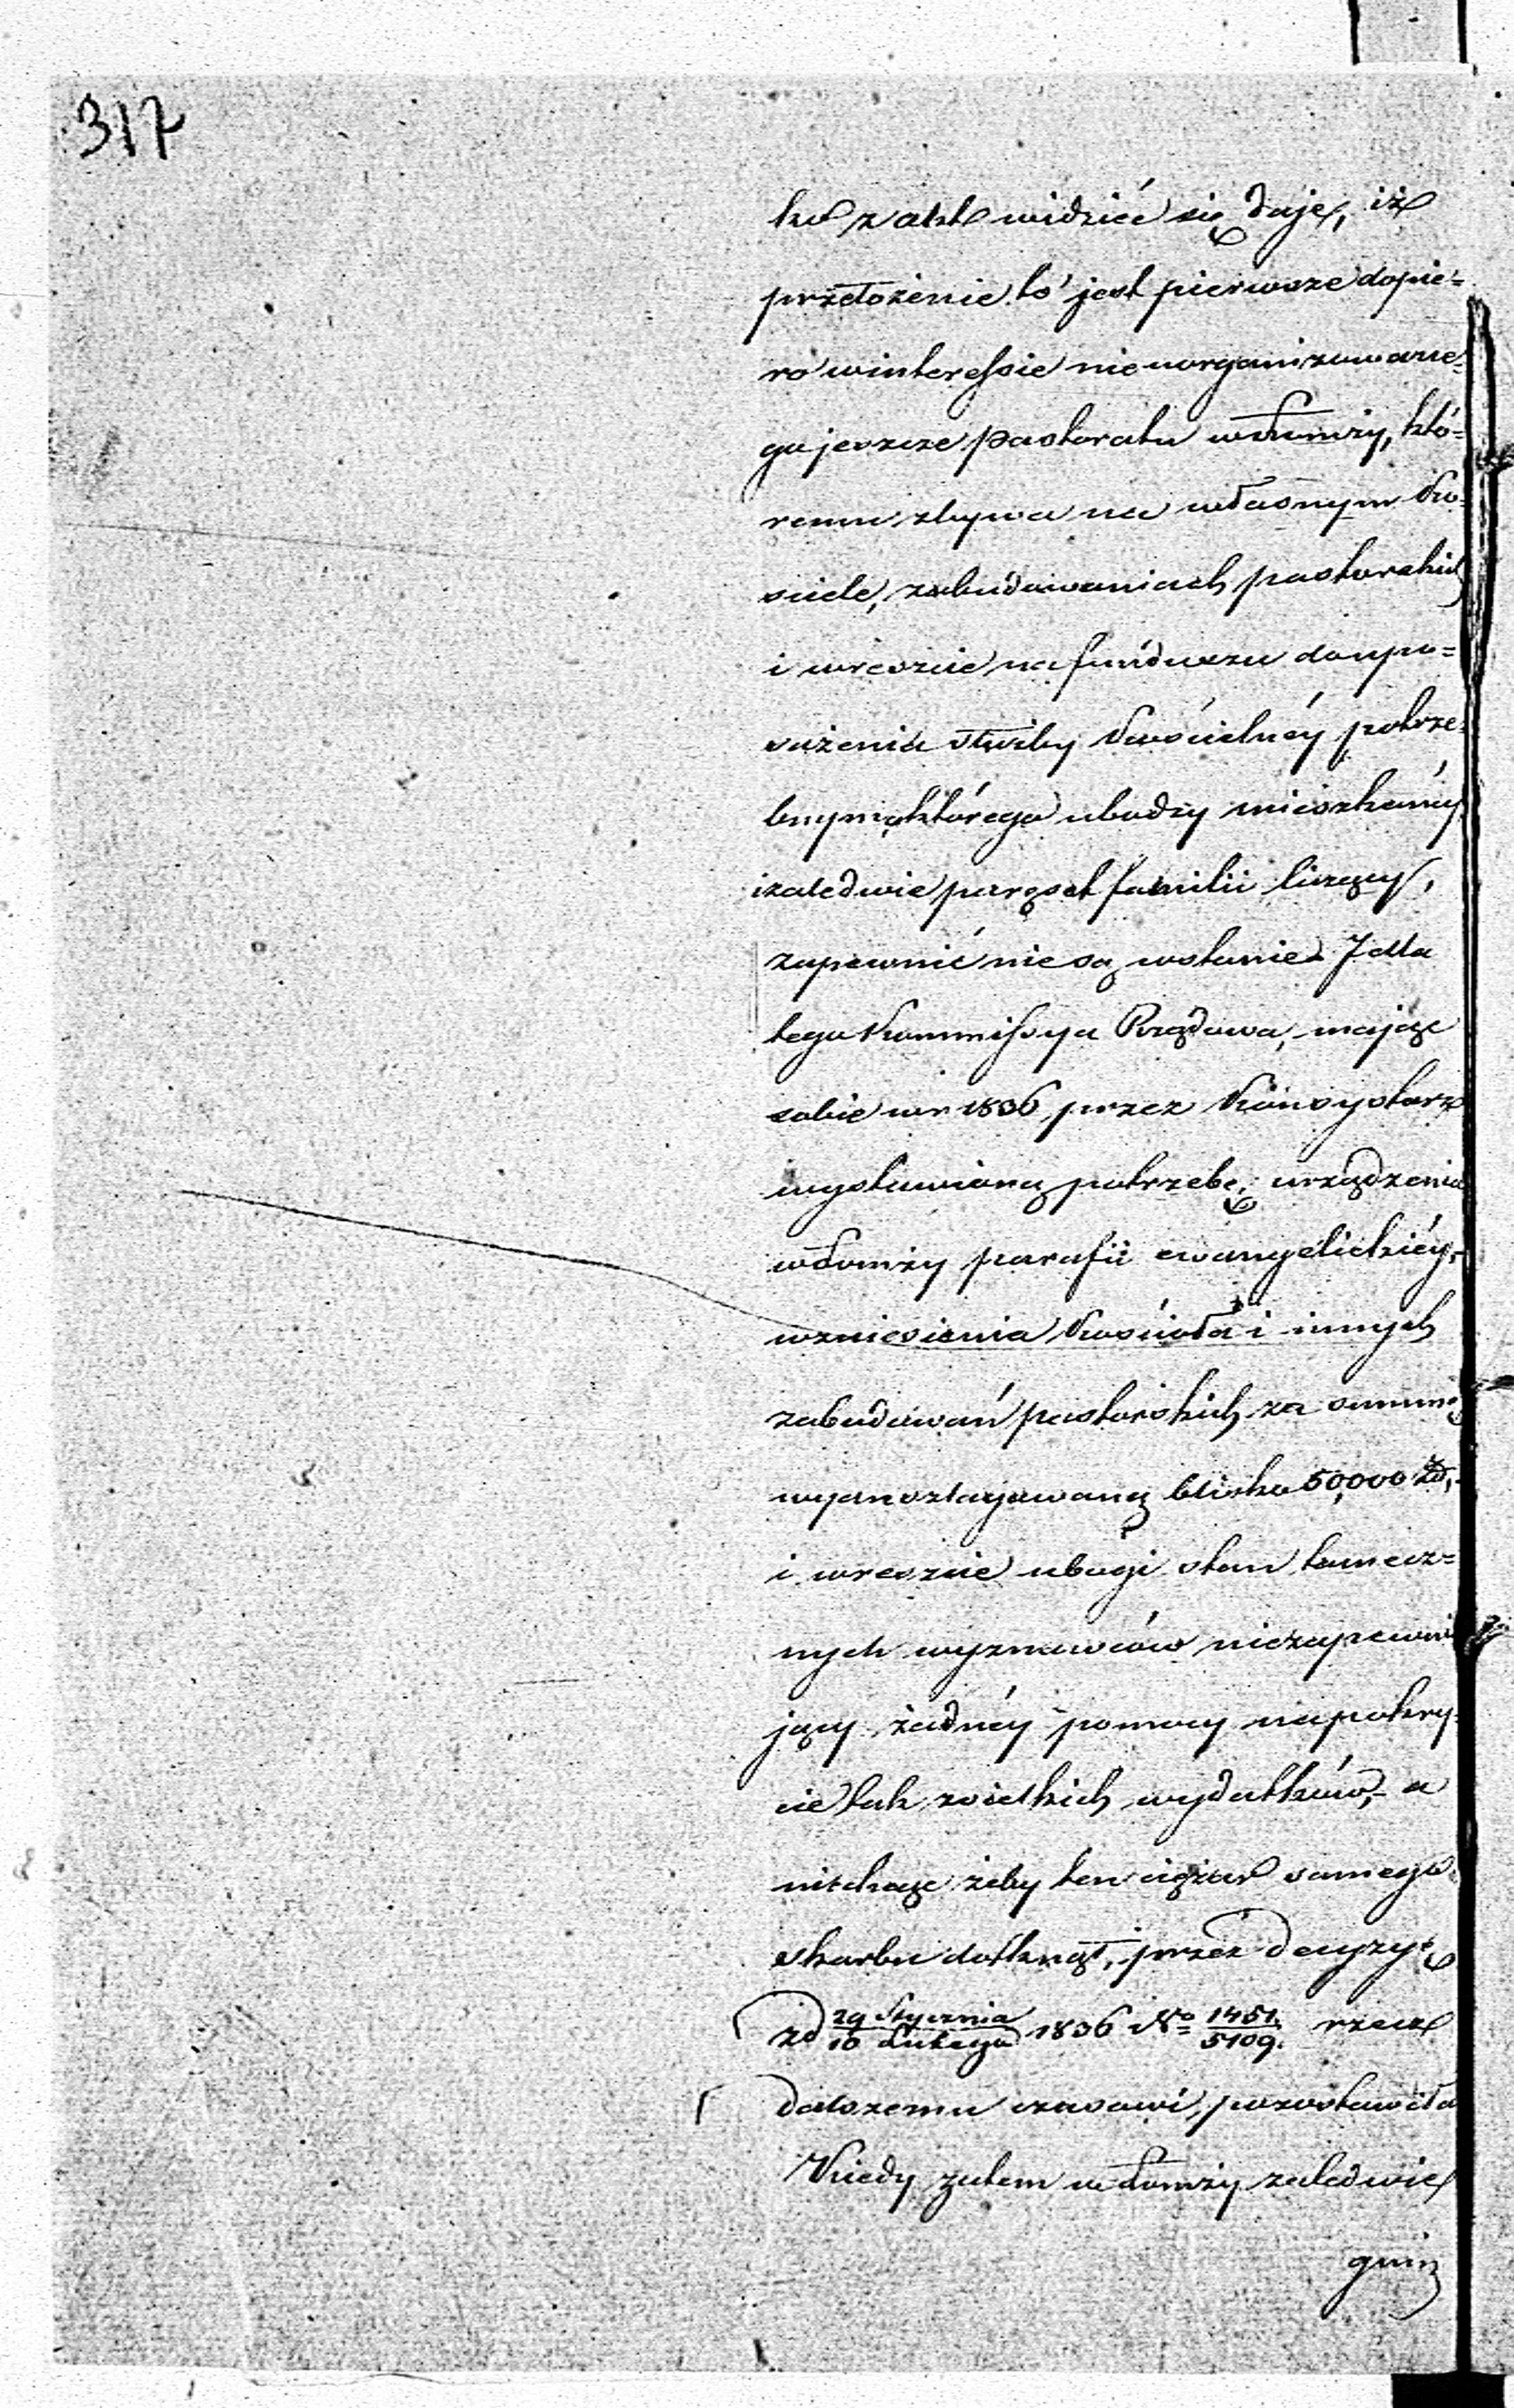 317
ko z akt widzieć się daje, iż
przełożenie to jest pierwsze dopie=
ro w interessie nieuorganizowane=
go jeszcze pastoratu w Łomży, któ=
remu zbywa na własnym Ko=
ściele, zabudowaniach pastorskich
i wreszcie na funduszu do upo=
sażenia służby Kościelnéy potrze=
bnym, którego ubodzy mieszkańcy
i zaledwie paręset familii liczący,
zapewnić nie są wstanie. I dla
tego Kommissya Rządowa, mając
sobie w r 1836 przez Konsystorz
wystawioną potrzebę, urządzenia
w Łomży parafii ewangelickiéy,
wzniesienia Kościoła i innych
zabudowań pastorskich za summę
wyanszlagowaną blisko 50,000 Zł,
i wreszcie ubogi stan tamecz=
nych wyznawców niezapewnia
jący żadnéy pomocy na pokry=
cie tak wielkich wydatków, a
niechcąc żeby ten ciężar samego
skarbu dotknął, przez decyzyę
zd 29 Stycznia / 10 Lutego 1836 No 1451. / 5109. rzecz
dalszemu czasowi, pozostawiła
Kiedy zatem w Łomży zaledwie
gmin